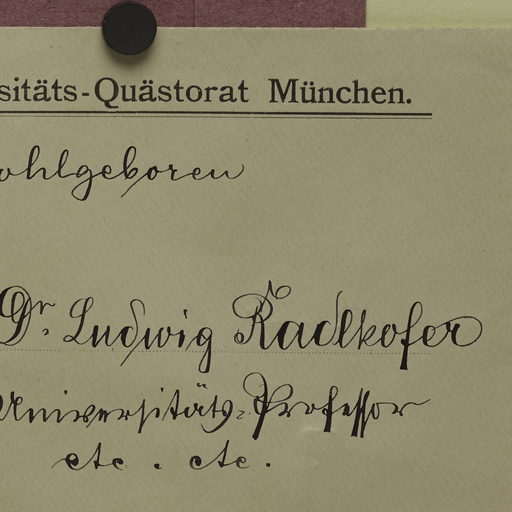 sitäts-Quästorat München.
ohlgeboren
Dr. Ludwig Radlkofer
Universitäts-Professor
etc. etc.